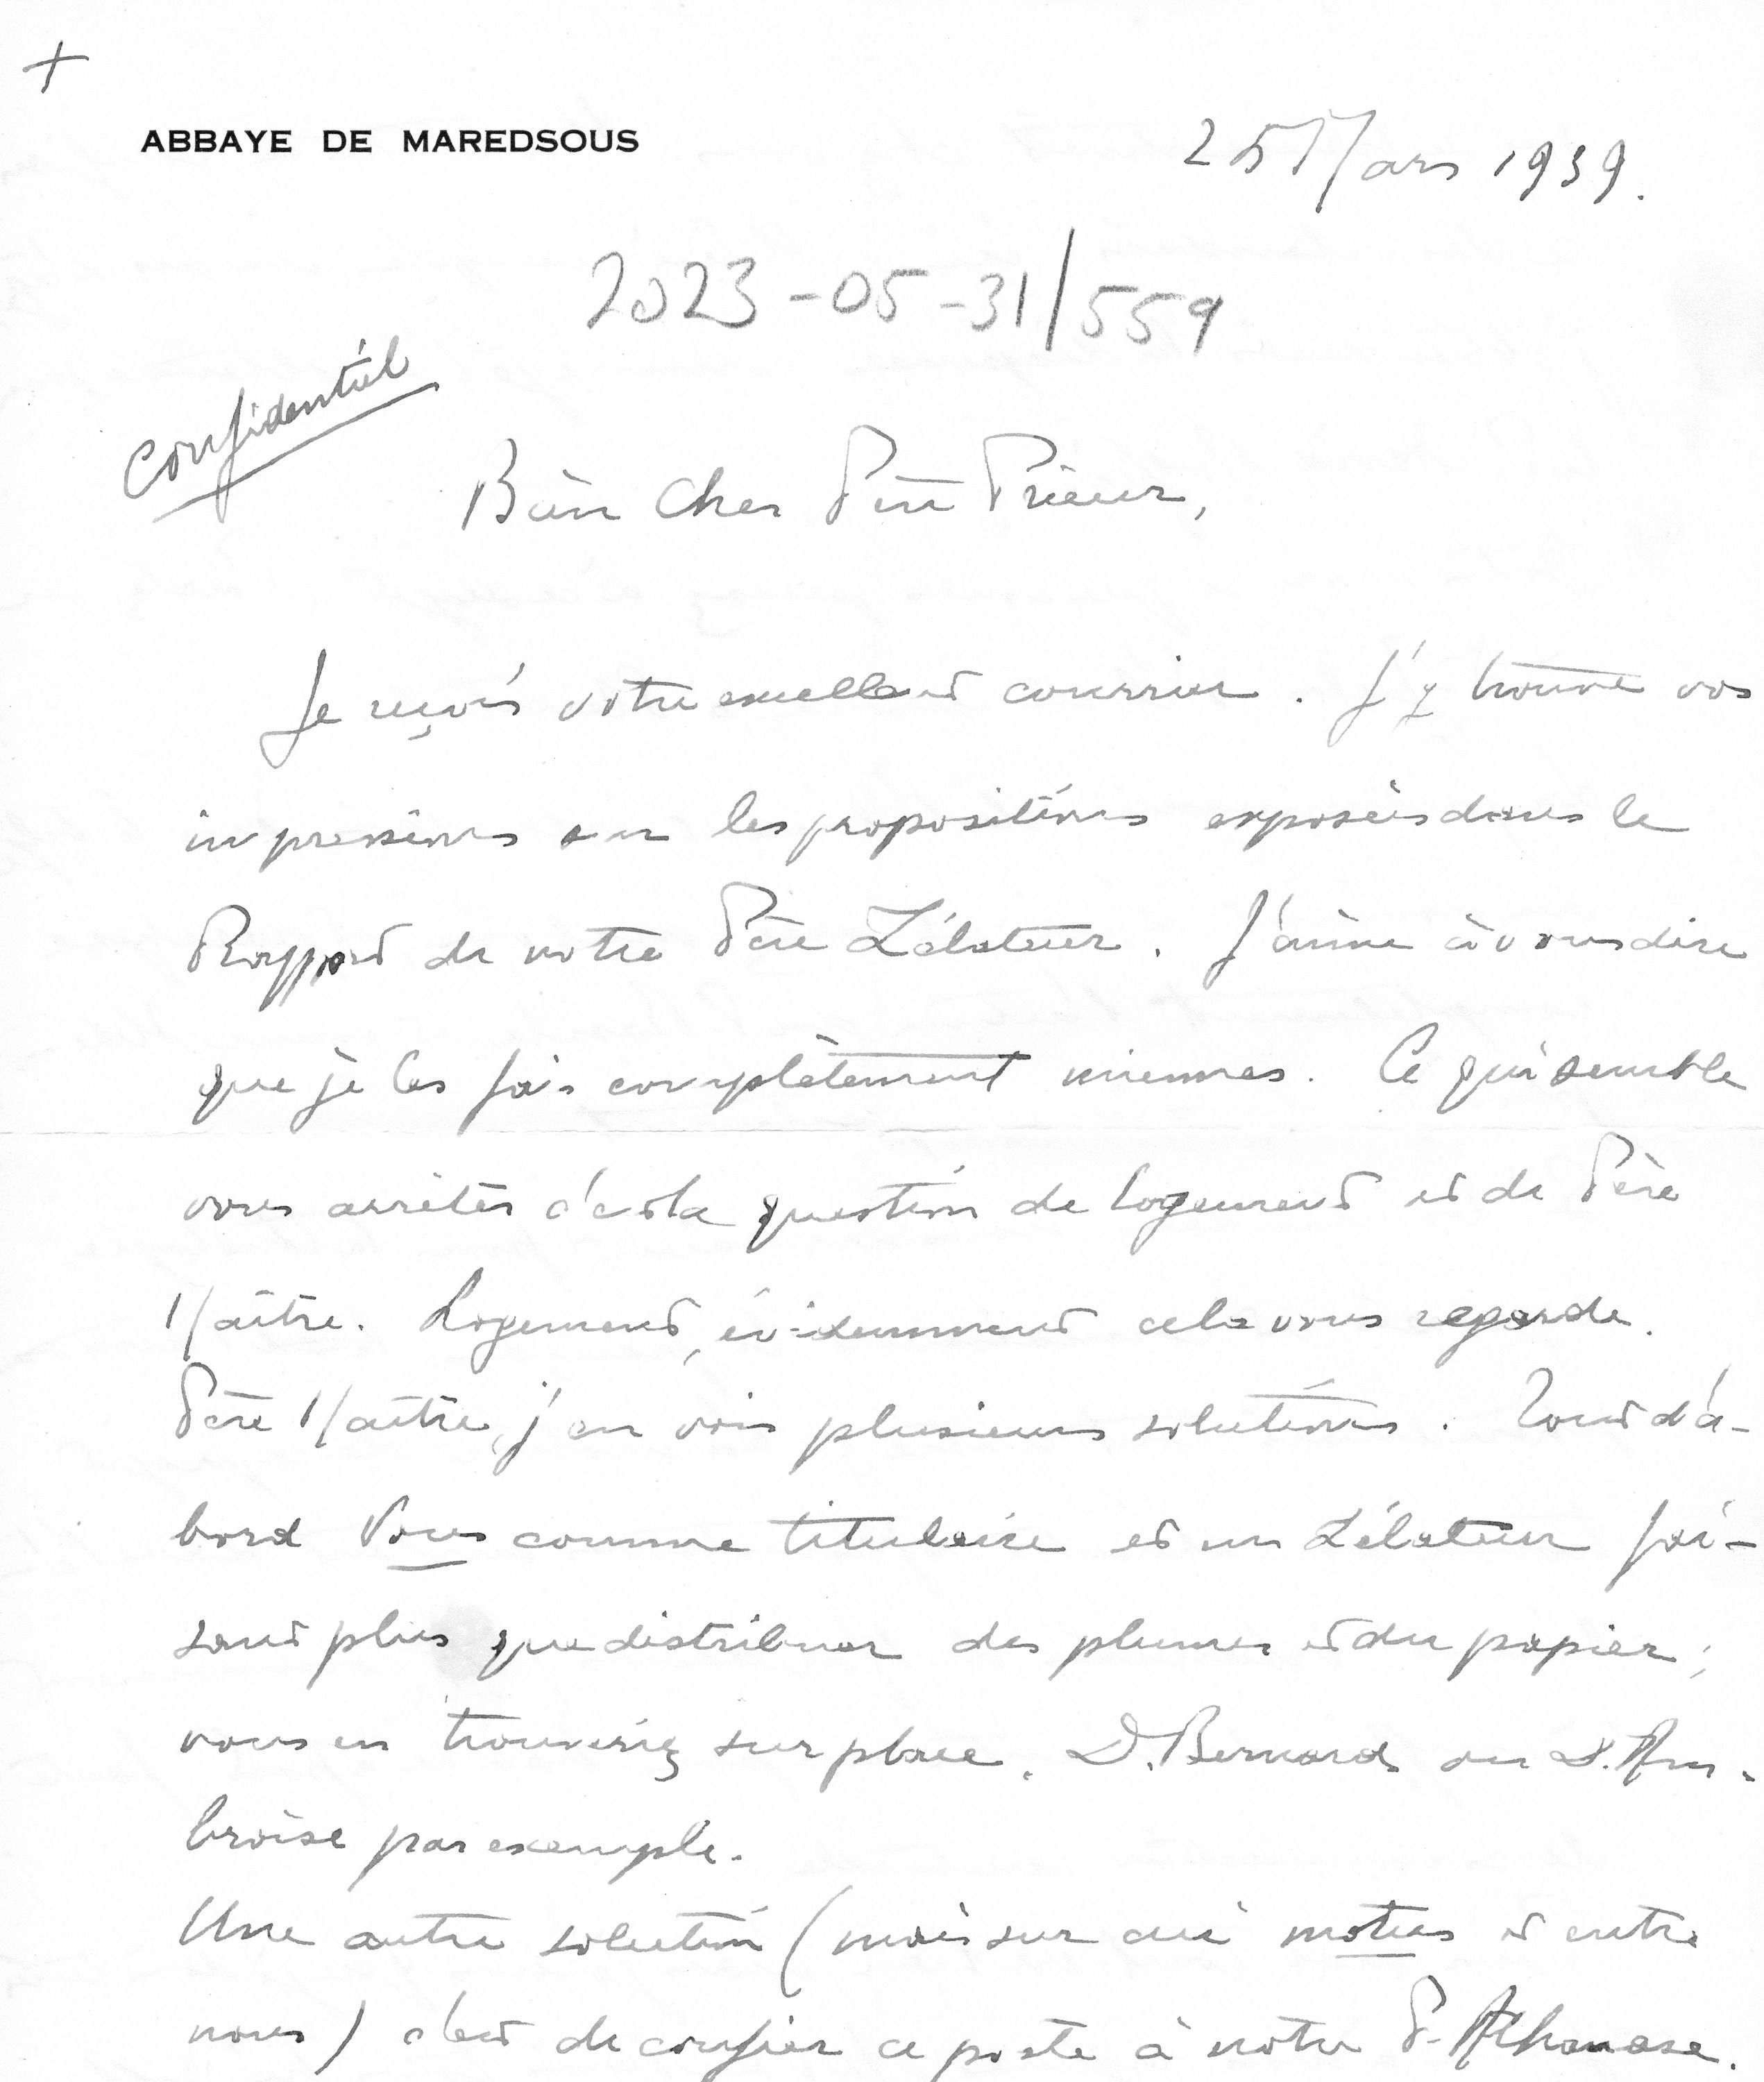 +
ABBAYE DE MAREDSOUS
25 Mars 1939.
2023-05-31/559
Confidentiel
Bien Cher Père Prieur,
Je reçois votre excellent courrier. J'y trouve vos
impressions sur les propositions exposées dans le
Rapport de votre Père Zélateur. J'aime à vous dire
que je les fais complètement miennes. Ce qui semble
vous arrêter c'est la question de logement et de Père
Maître. Logement, évidemment cela vous regarde.
Père Maître, j'en vois plusieurs solutions. Tout d'a-
bord Vous comme titulaire et un Zélateur fai-
sant plus que distribuer des plumes et du papier;
vous en trouveriez sur place. D. Bernard ou D. Am-
broise par exemple.
Une autre solution (mais sur ce motus et entre
nous) c'est de confier ce poste à notre P. Athanase.